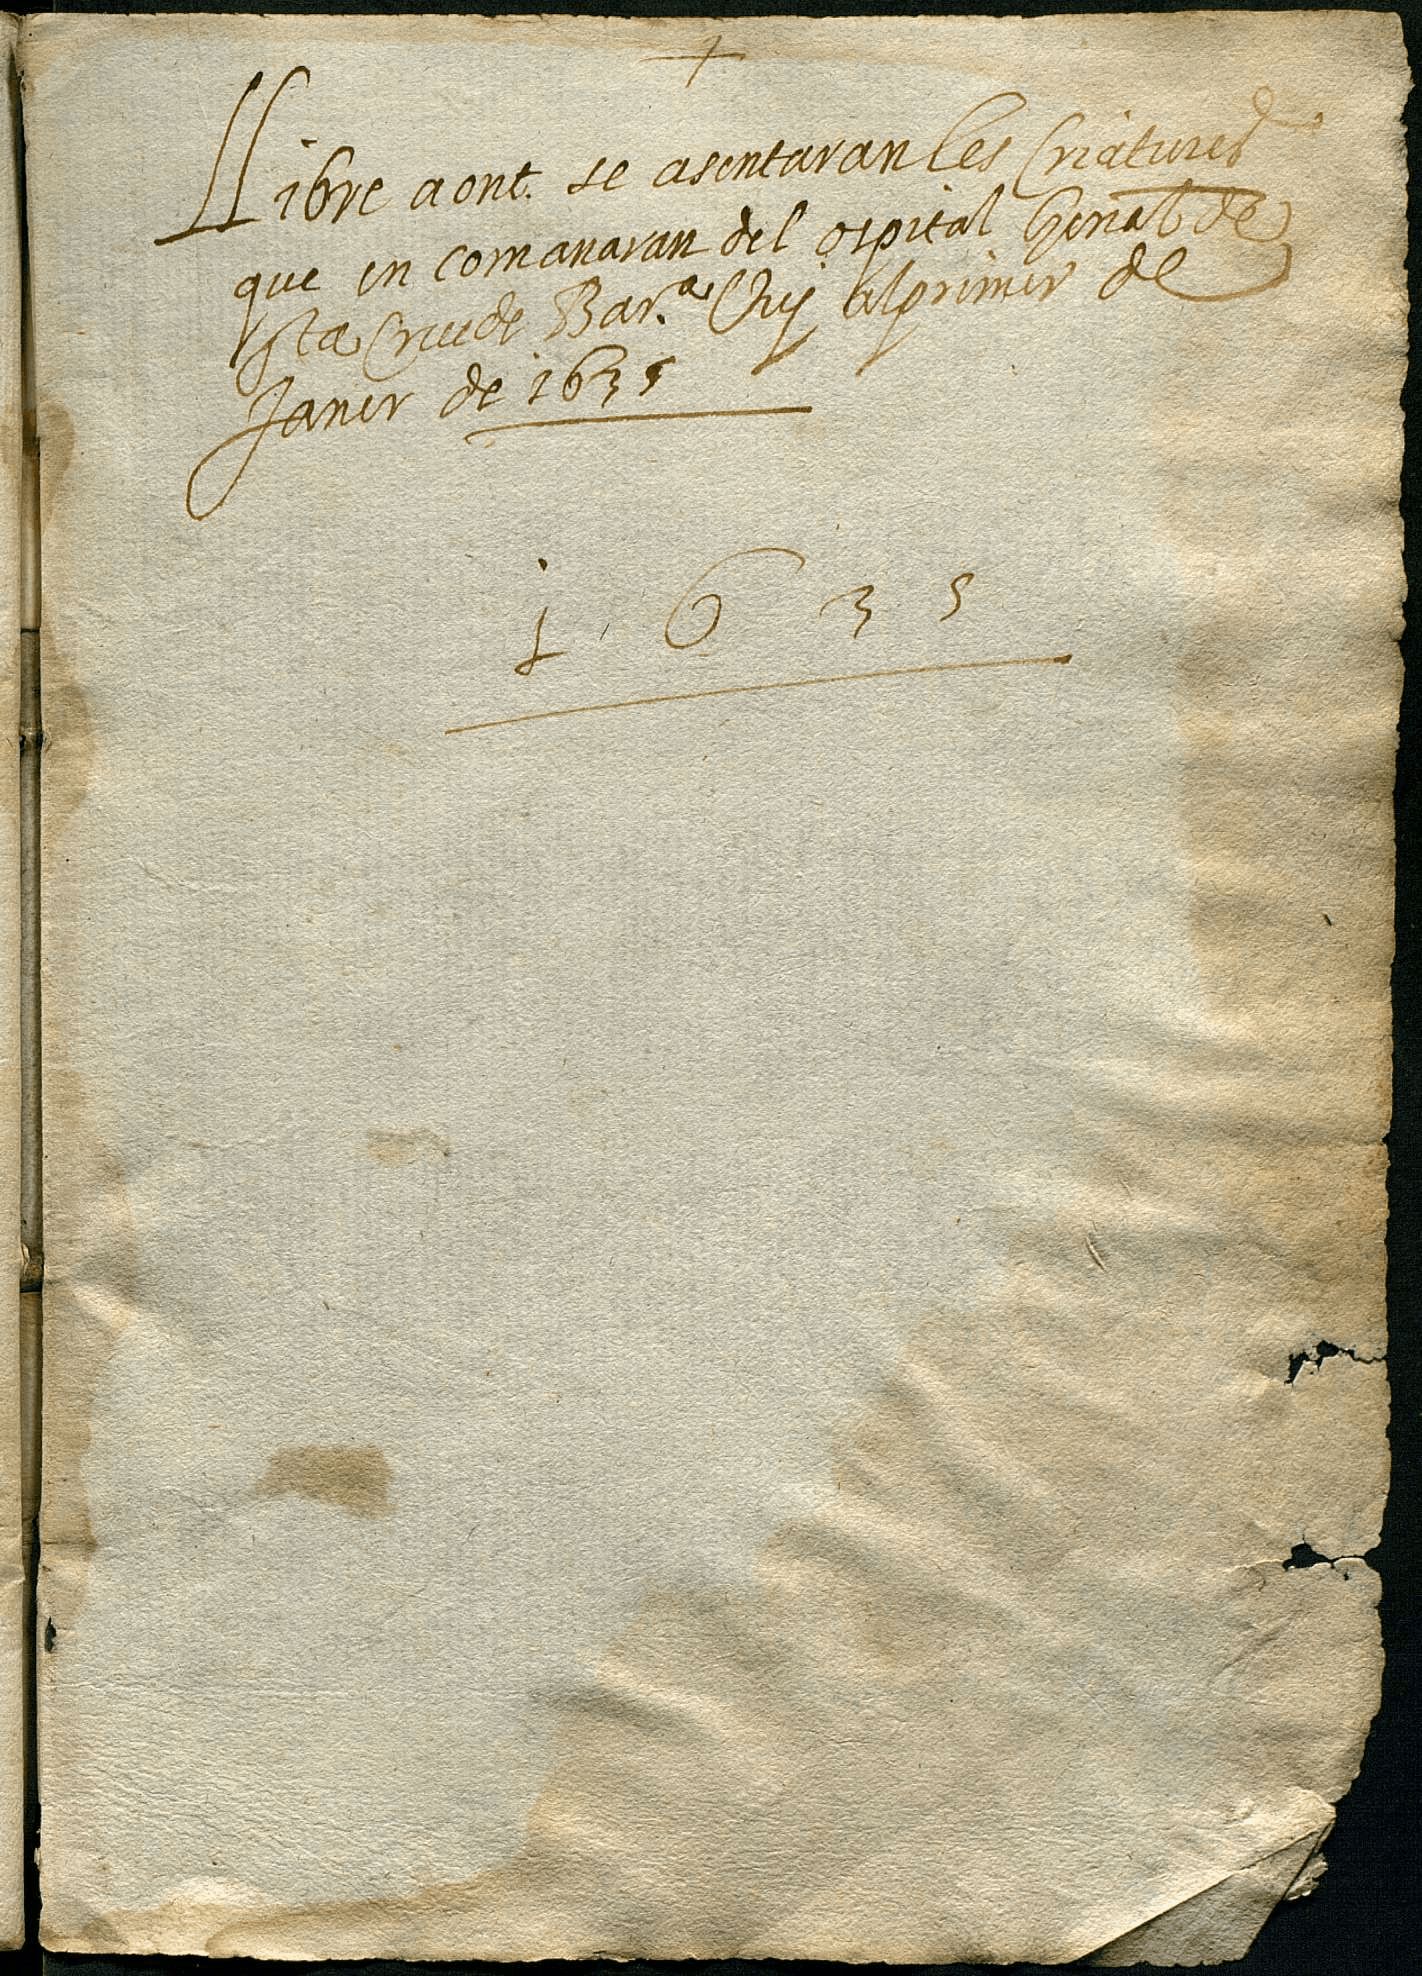 +
Llibre aont. se asentaran les Criatures
que en comanaran del ospital Genal de
sta Creu de Bar.ª Vuy al primer de
Janer de 1635
1635